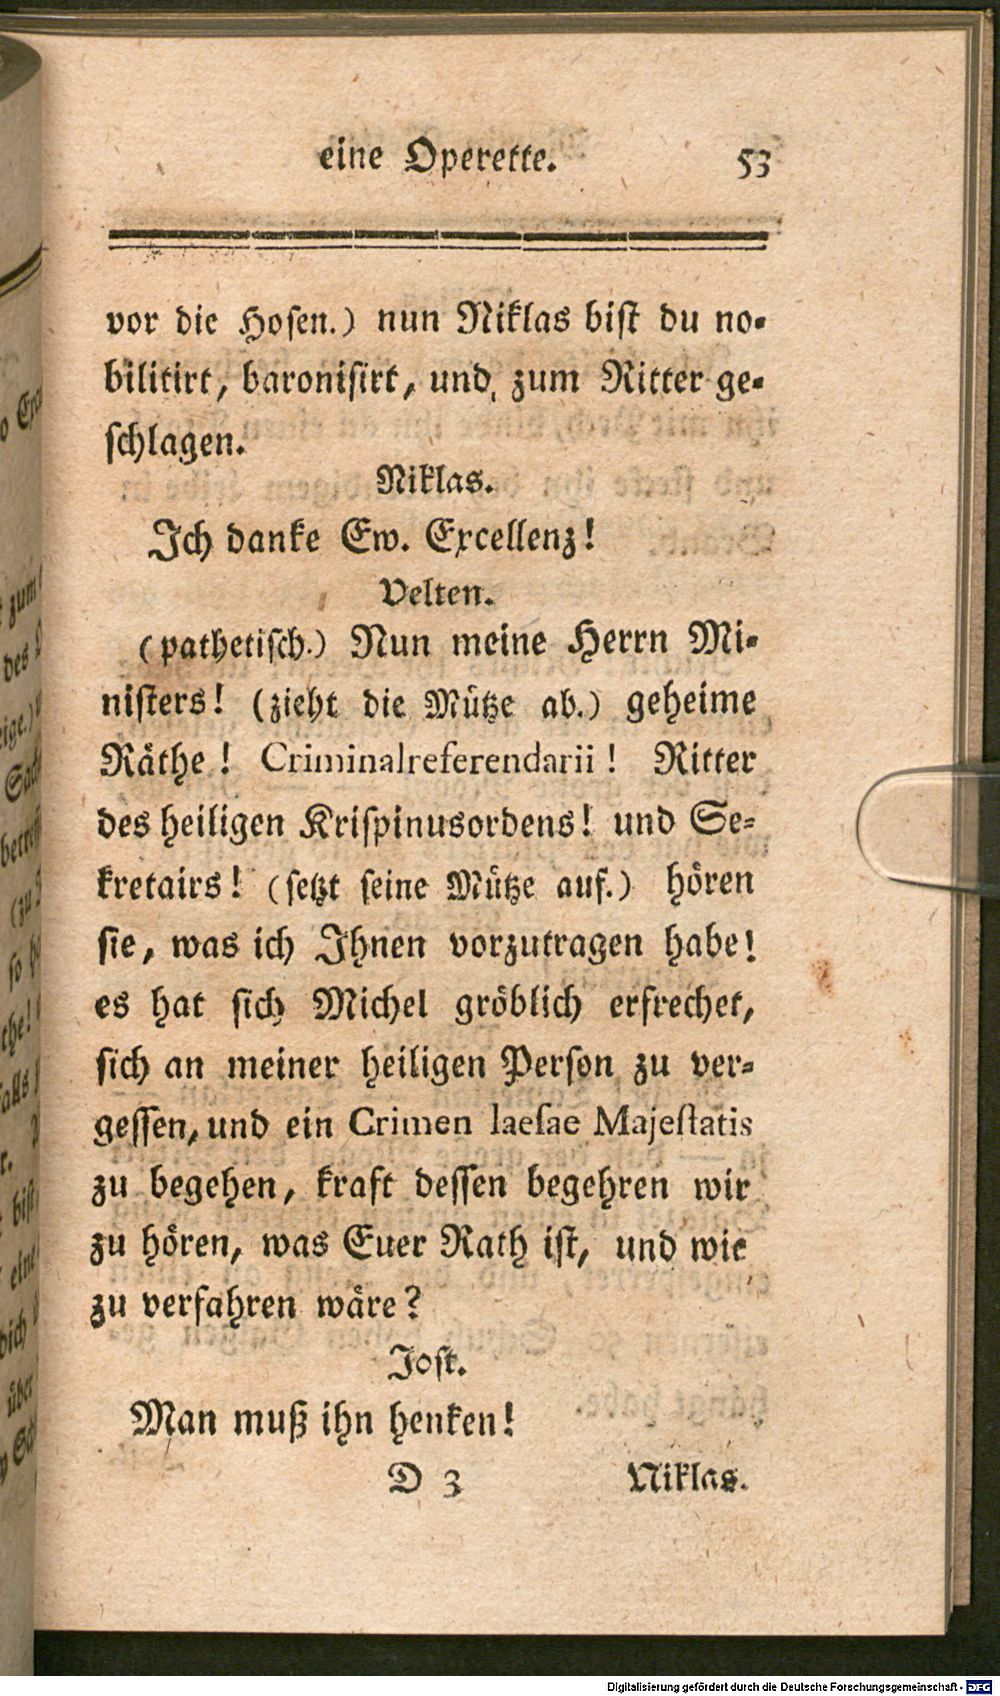 eine Operette. 53
vor die Hosen.) nun Niklas bist du no-
bilitirt, baronisirt, und zum Ritter ge-
schlagen.
Niklas.
Ich danke Ew. Excellenz!
Velten.
(pathetisch.) Nun meine Herrn Mi-
nisters! (zieht die Mütze ab.) geheime
Räthe! Criminalreferendarii! Ritter
des heiligen Krispinusordens! und Se-
kretairs! (setzt seine Mütze auf.) hören
sie, was ich Ihnen vorzutragen habe!
es hat sich Michel gröblich erfrechet,
sich an meiner heiligen Person zu ver-
gessen, und ein Crimen laesae Majestatis
zu begehen, kraft dessen begehren wir
zu hören, was Euer Rath ist, und wie
zu verfahren wäre?
Jost.
Man muß ihn henken!
D 3 Niklas.
Digitalisierung gefördert durch die Deutsche Forschungsgemeinschaft - DFG